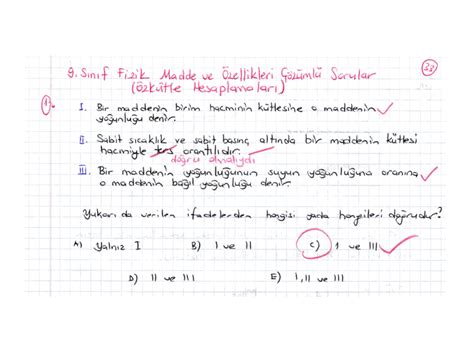 9. Sınıf Fizik Madde ve Özellikleri Çözümlü Sorular
(Özkütle Hesaplamaları)
1.
I. Bir maddenin birim hacminin kütlesine o maddenin
yoğunluğu denir.
II. Sabit sıcaklık ve sabit basınç altında bir maddenin kütlesi
hacmiyle ters orantılıdır.
doğru olmalıydı
III. Bir maddenin yoğunluğunun suyun yoğunluğuna oranına
o maddenin bağıl yoğunluğu denir.
Yukarıda verilen ifadelerden hangisi yada hangileri doğrudur?
A) Yalnız I B) I ve II C) I ve III
D) II ve III E) I, II ve III